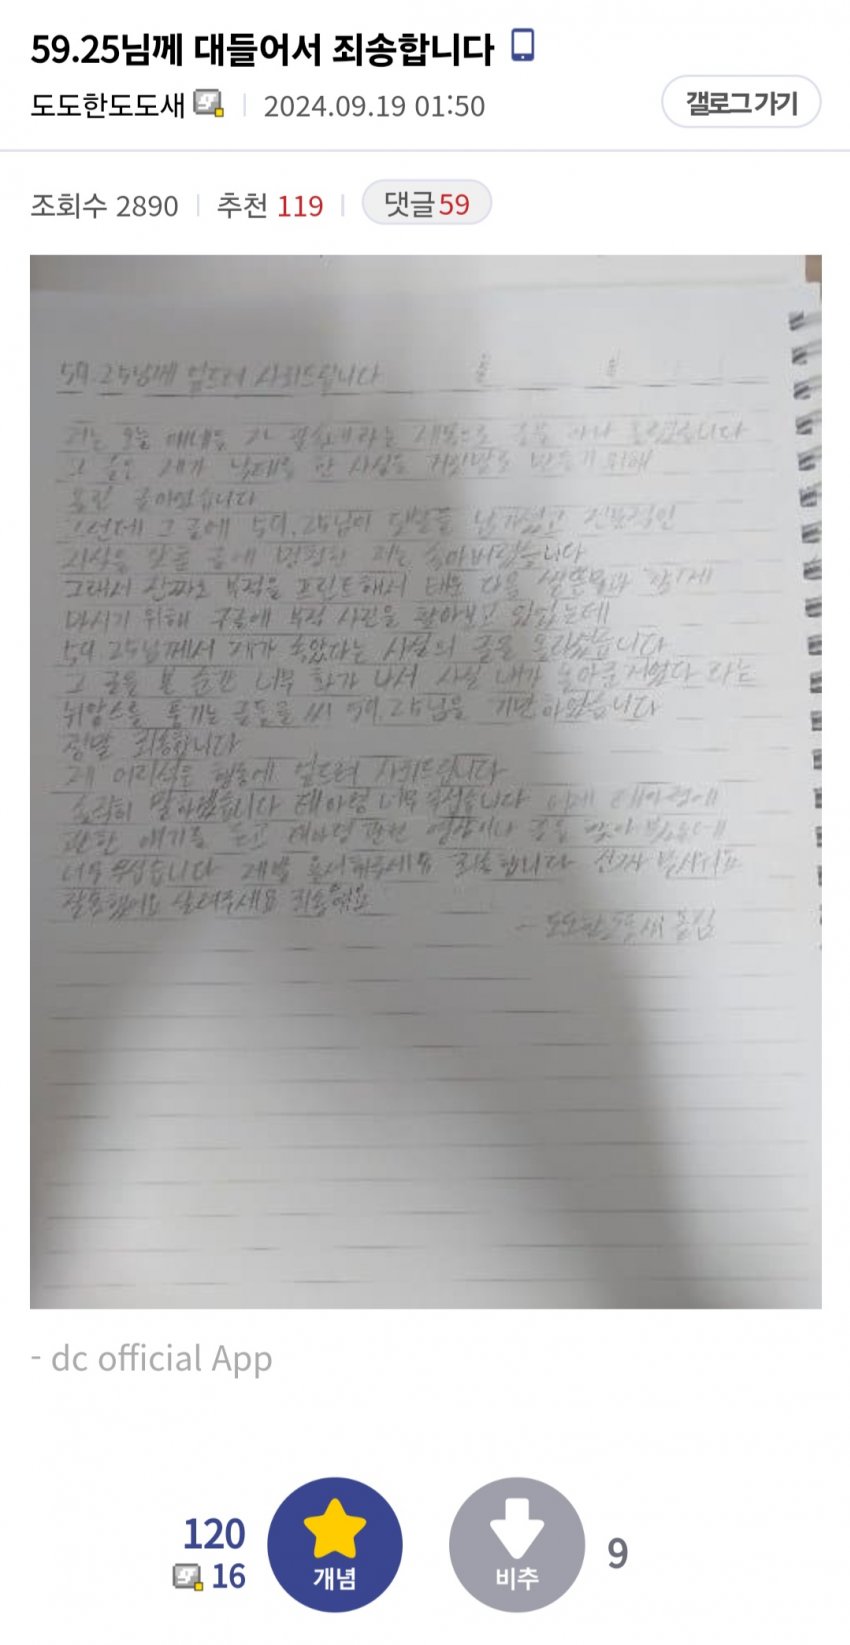 59.25님께 대들어서 죄송합니다
도도한도도새
2024.09.19 01:50
갤로그 가기
조회수 2890
추천 119
댓글 59
59.25님께 엎드려 사죄드립니다
저는 오늘 라는 제목으로 글을 하나 올렸습니다
그 글은 제가 한 사실을 거짓말로 만들기 위해
올린 글이었습니다
그런데 그 글에 59.25님이 댓글을 남기셨고 전문적인
지식을 갖춘 글에 멍청한 저는 속아버렸습니다
그래서 진짜로 부적을 프린트해서 태운 다음 생뜨물과 함께
마시기 위해 구글에 부적 사진을 찾아보고 있었는데
59.25님께서 제가 속았다는 사실의 글을 올리셨습니다
그 글을 본 순간 너무 화가 나서 사실 내가 놀아준거였다 라는
뉘앙스를 풍기는 글들을 써 59.25님을 기만하였습니다
정말 죄송합니다
제 어리석은 행동에 엎드려 사죄드립니다
솔직히 말하겠습니다 테아렁 너무 무섭습니다 이제 테아렁에
관한 얘기를 듣고 테아렁 관련 영상이나 글을 찾아 봤는데
너무 무섭습니다 제발 용서해주세요 죄송합니다 진짜
잘못했어요 살려주세요 죄송해요
- 도도한도도새 올림
- dc official App
120
16
개념
비추
9